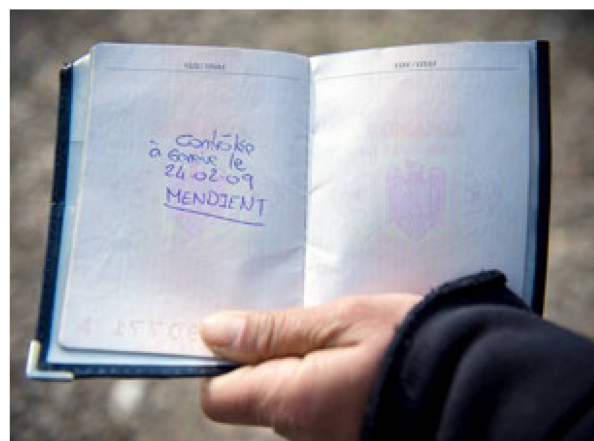 Contrôlée
à Genève le
24-02-09
MENDIENT